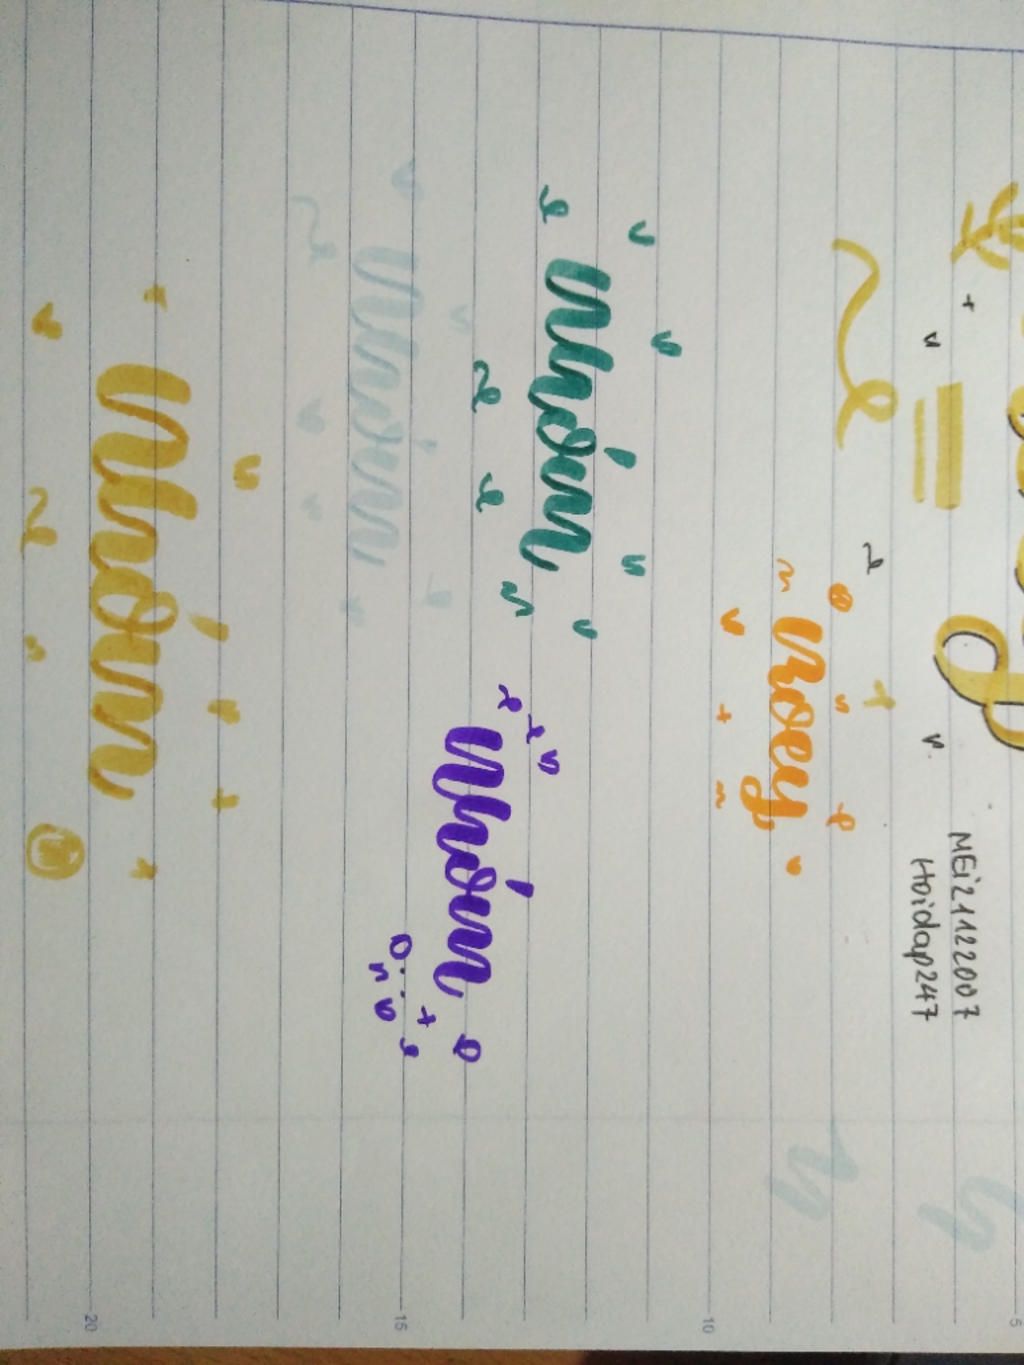 MEi21122007
Hoidap247
noey
Nhóm
Nhóm
Nhóm
Nhóm
5
10
15
20